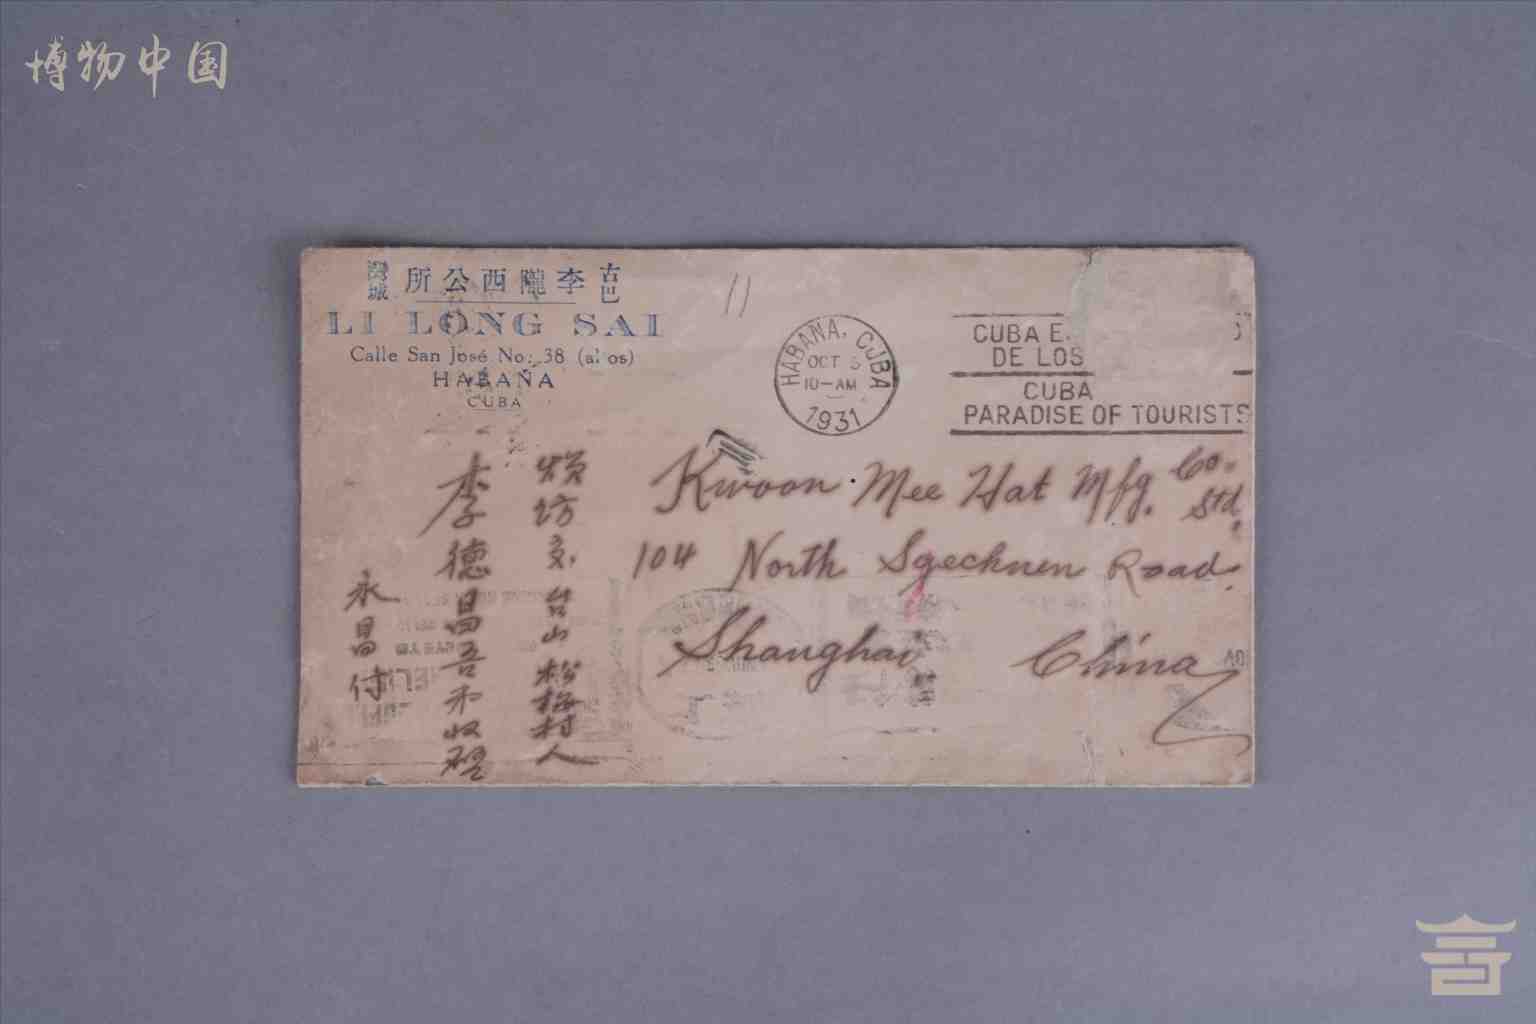 博物中国
古巴 李隴西公所 灣城
LI LONG SAI
Calle San José No. 38 (altos)
HABANA
CUBA
11
HABANA, CUBA
OCT 5
10-AM
1931
CUBA E
DE LOS
CUBA
PARADISE OF TOURISTS
Kwoon Mee Hat Mfg. Co. Ltd.
104 North Sgechuen Road.
Shanghai China
煩坊交台山松梅村人
李德昌吾和收啓
永昌付